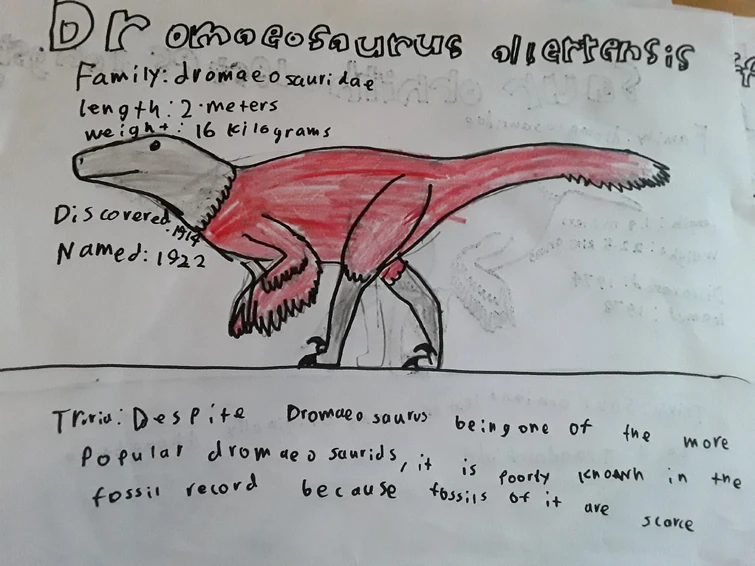 Dromaeosaurus albertensis
Family: dromaeosauridae
length: 2 meters
weight: 16 kilograms
Discovered: 1914
Named: 1922
Trivia: Despite Dromaeosaurus being one of the more
popular dromaeosaurids, it is poorly known in the
fossil record because fossils of it are scarce